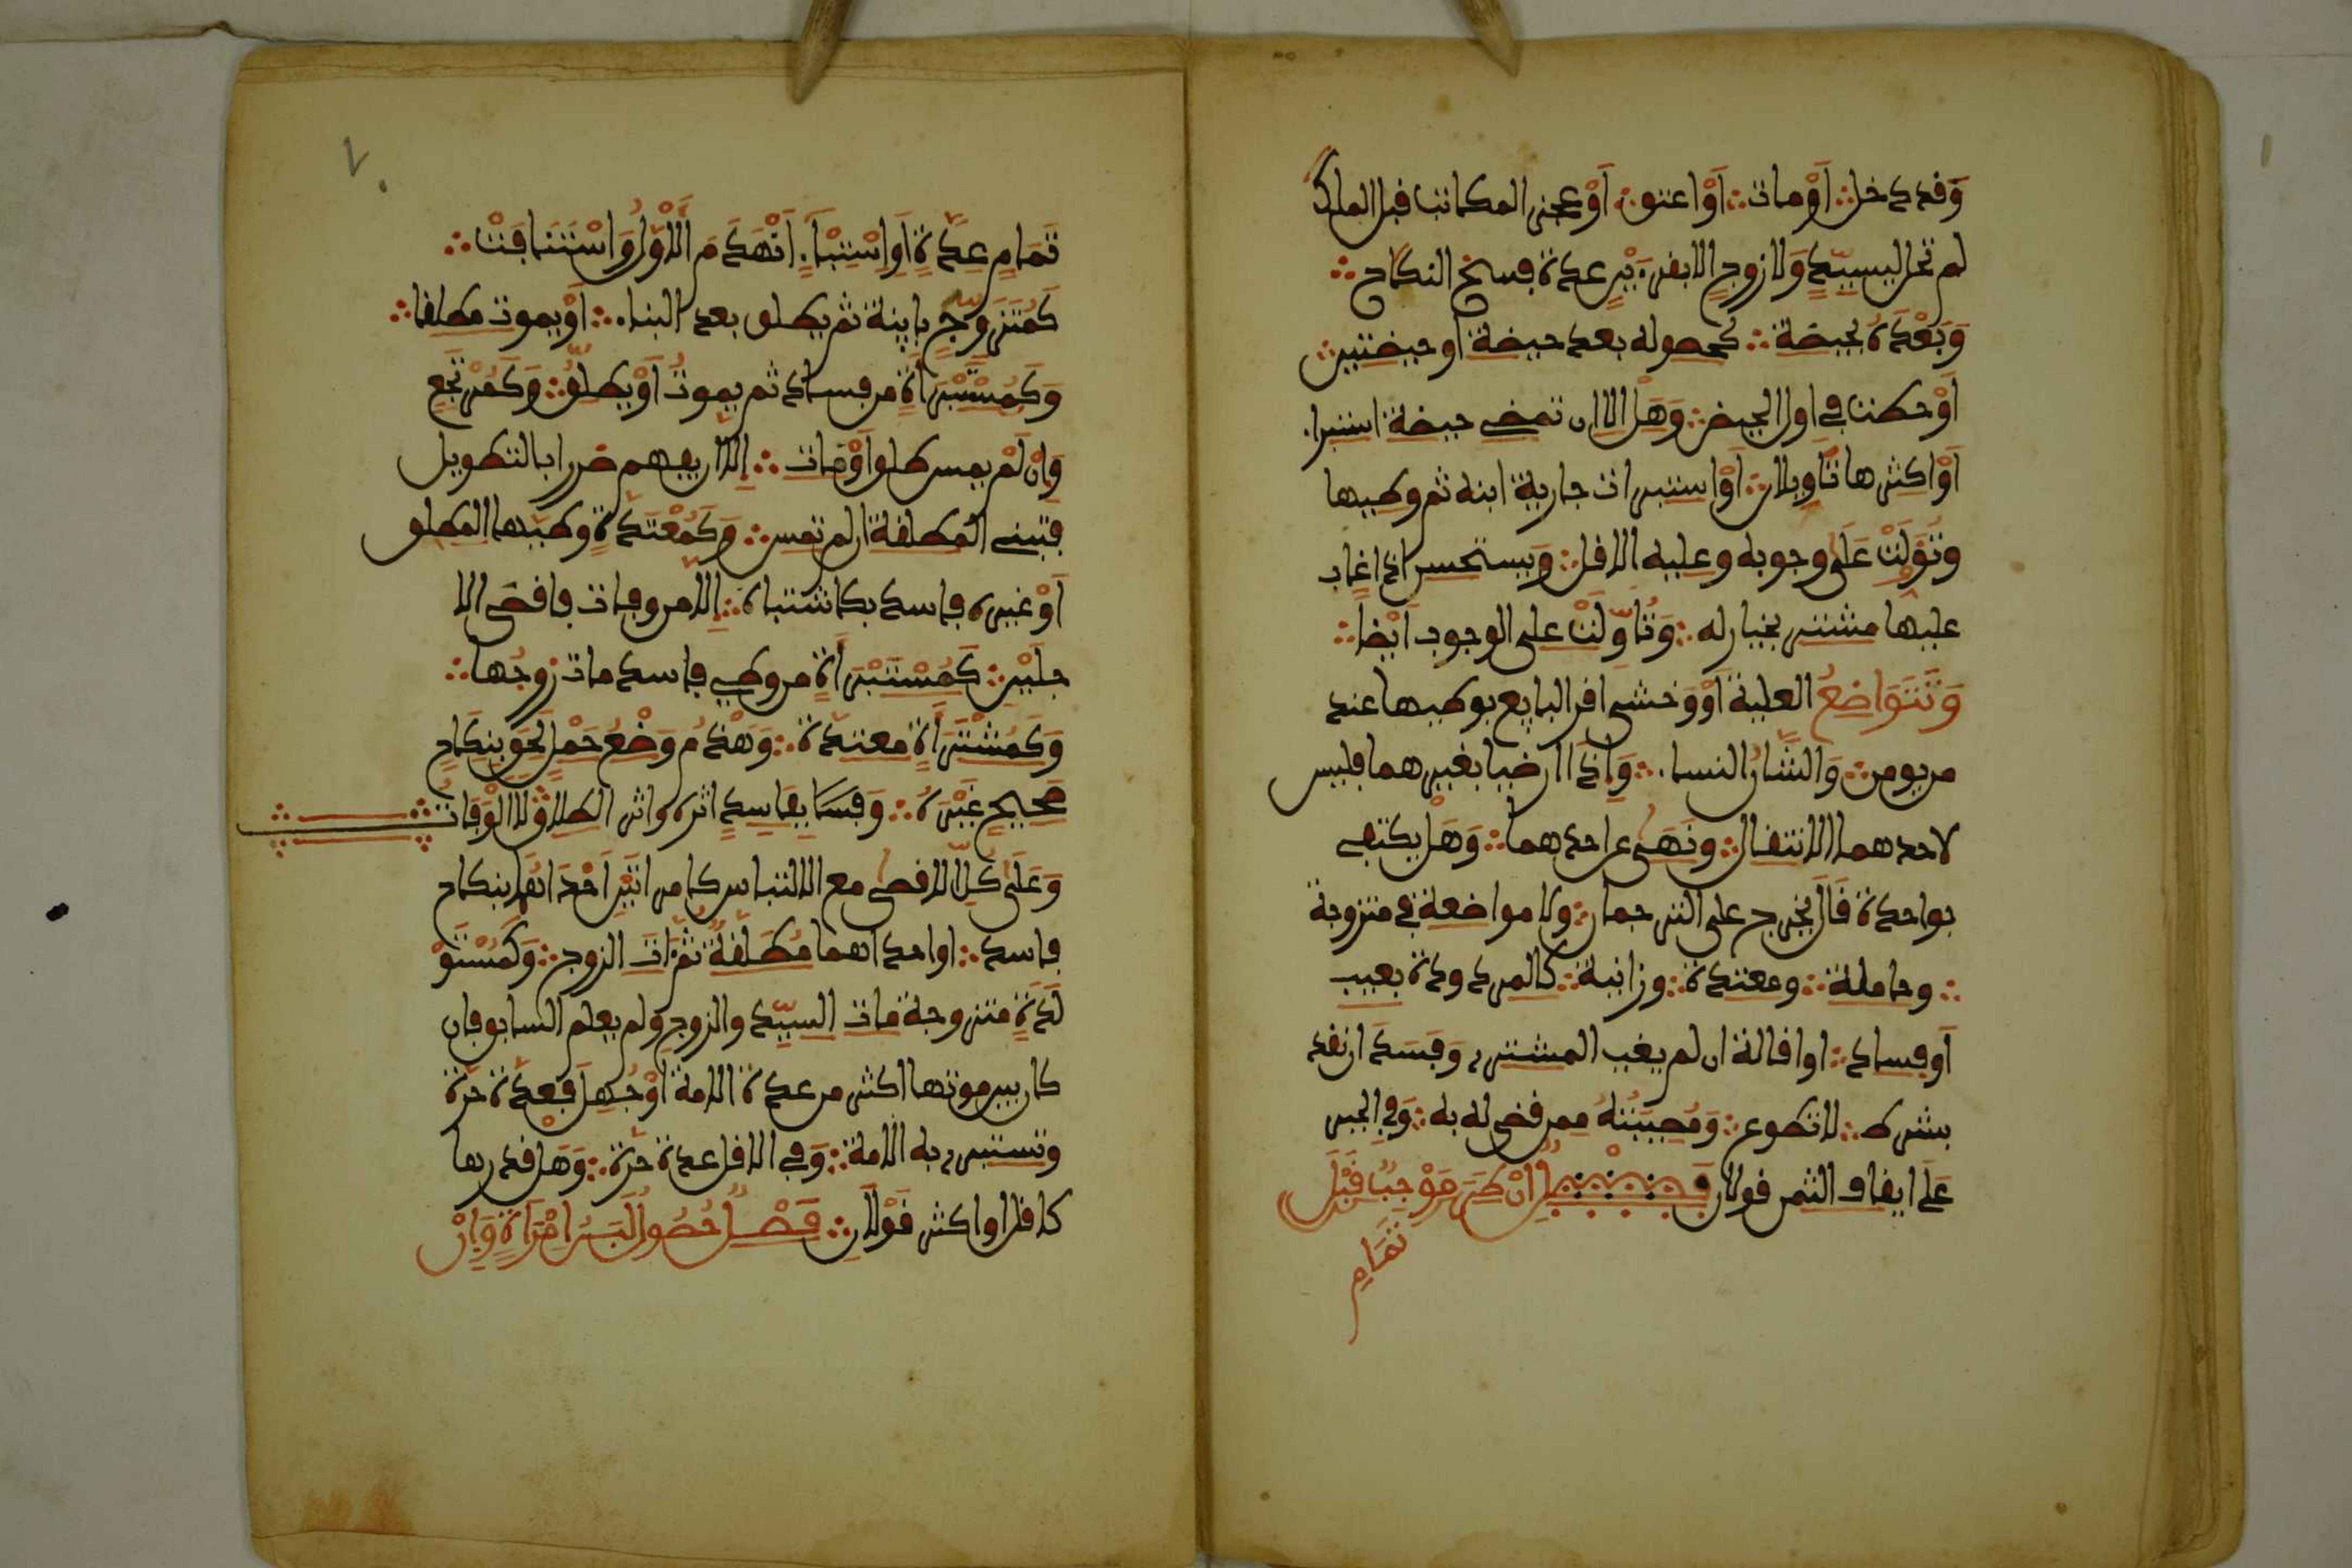 وَقد دخل أَوْ مات أَوْ اعتق أَوْ عجز المكاتب قبل الملك
لم تحل لسيد وَلا زوج الا بقرءين عدة فسخ النكاح
وَبَعْدَهُ بحيضة كحصوله بعد حيضة او حيضتين
أَوْ حصلت في اول الحيض وَهَل الا ان تمضي حيضة استبراء
أَوْ اكثرها تاويلان أَوْ استبرات جارية ابنه ثم وطيها
وتُؤولَتْ عَلَى وجوبه وعليه الاقل وَيستحسن اذا غاب
عليها مشتر بخيار له وَتُأوّلَتْ على الوجوب أَيْضا
وَتَتَوَاضَعُ العلية أَوْ وَخش اقر البايع بوطيها عند
من يومن وَالشَّانُ النساء وَإِذَا رضيا بغيرهما فليس
لاحدهما الانتقال ونَهَى عن احدهما وَهَل يكتفى
بواحدة قَالَ يخرج على الترجمان ولا مواضعة في متزوجة
وحاملة ومعتدة وزانية كالمردودة بعيب
أَو فساد او اقالة ان لم يغب المشتري وَفَسَدَ ان نقد
بشرط لا تطوع وَمُصِيبَتُهُ ممن قضى له به وَفي الجبر
عَلَى ايقاف الثمن قولان فَصْلٌ إِنْ طَرَأَ مُوْجِبٌ قَبْلَ
تَمَامِ
٧٠
تَمَامِ عِدَّةٍ أَوِ اسْتِبْرَاءٍ انْهَدَمَ الأَوَّلُ وَاسْتَنَافَتْ
كَمُتَزَوِّجٍ باينة ثم يطلق بعد البناء أَوْ يموت مطلقا
وَكَمُسْتَبْرَأَةٍ من فساد ثم يموتُ أَوْ يطلقُ وَكَمُرْتَجِعٍ
وَإِنْ لَمْ يمس طلق أَوْ مَات إِلّا ان يفهم ضررا بالتطويل
فتبني المطلقة ان لم تمس وَكَمُعْتَدَّةٍ وطيها المطلق
أَوْ غيره فاسدا بكاشتباه إِلّا من وفات فاقصى الا
جلَيْن كَمُسْتَبْرَأَةٍ من وطي فاسد مات زوجُها
وَكَمُشْتَرَأَةٍ معتدة وَهَدَمَ وَضْعُ حَمْلٍ لَحِقَ بِنكَاحٍ
صَحِيحٍ غَيْرَهُ وَفسَا بِفَاسِدٍ اثره واثر الطلاق لا الْوَفَاتُ
وَعَلَى كُلٍّ الاقصى مع الالتباس كامراتَيْنِ احْدَاهُمَا بنكاح
فاسد او احداهما مُطَلَّقَةٌ ثُمَّ مَاتَ الزوج وَكَمُسْتَوْ
لَدَةٍ متزوجة مات السيِّد والزوج ولم يعلم السابق فان
كان بين موتهما اكثر من عدة الامة أَوْ جُهِلَ فَعِدّة حرّة
وتستبرى به الأمة وَفي الاقل عدة حرّة وَهَل قدرها
كاقل او اكثر قَوْلَانِ فَصْلٌ حُصُولُ لَبَنِ امْرَأَةٍ وَإِنْ